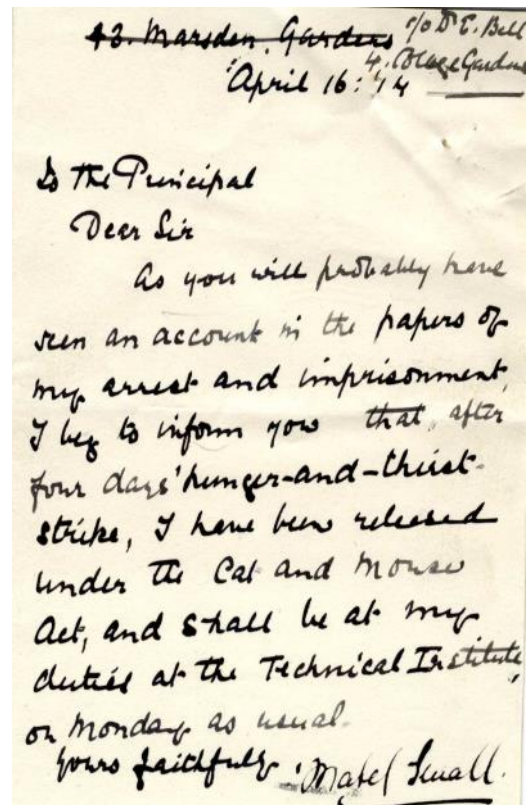 43. Marsden. Gardens c/o Dr E. Bell
4. College Gardens
April 16: 14
To the Principal
Dear Sir
As you will probably have
seen an account in the papers of
my arrest and imprisonment,
I beg to inform you that, after
four days' hunger-and-thirst-
strike, I have been released
under the Cat and Mouse
Act, and shall be at my
duties at the Technical Institute,
on Monday as usual.
Yours faithfully.
Mabel Small.